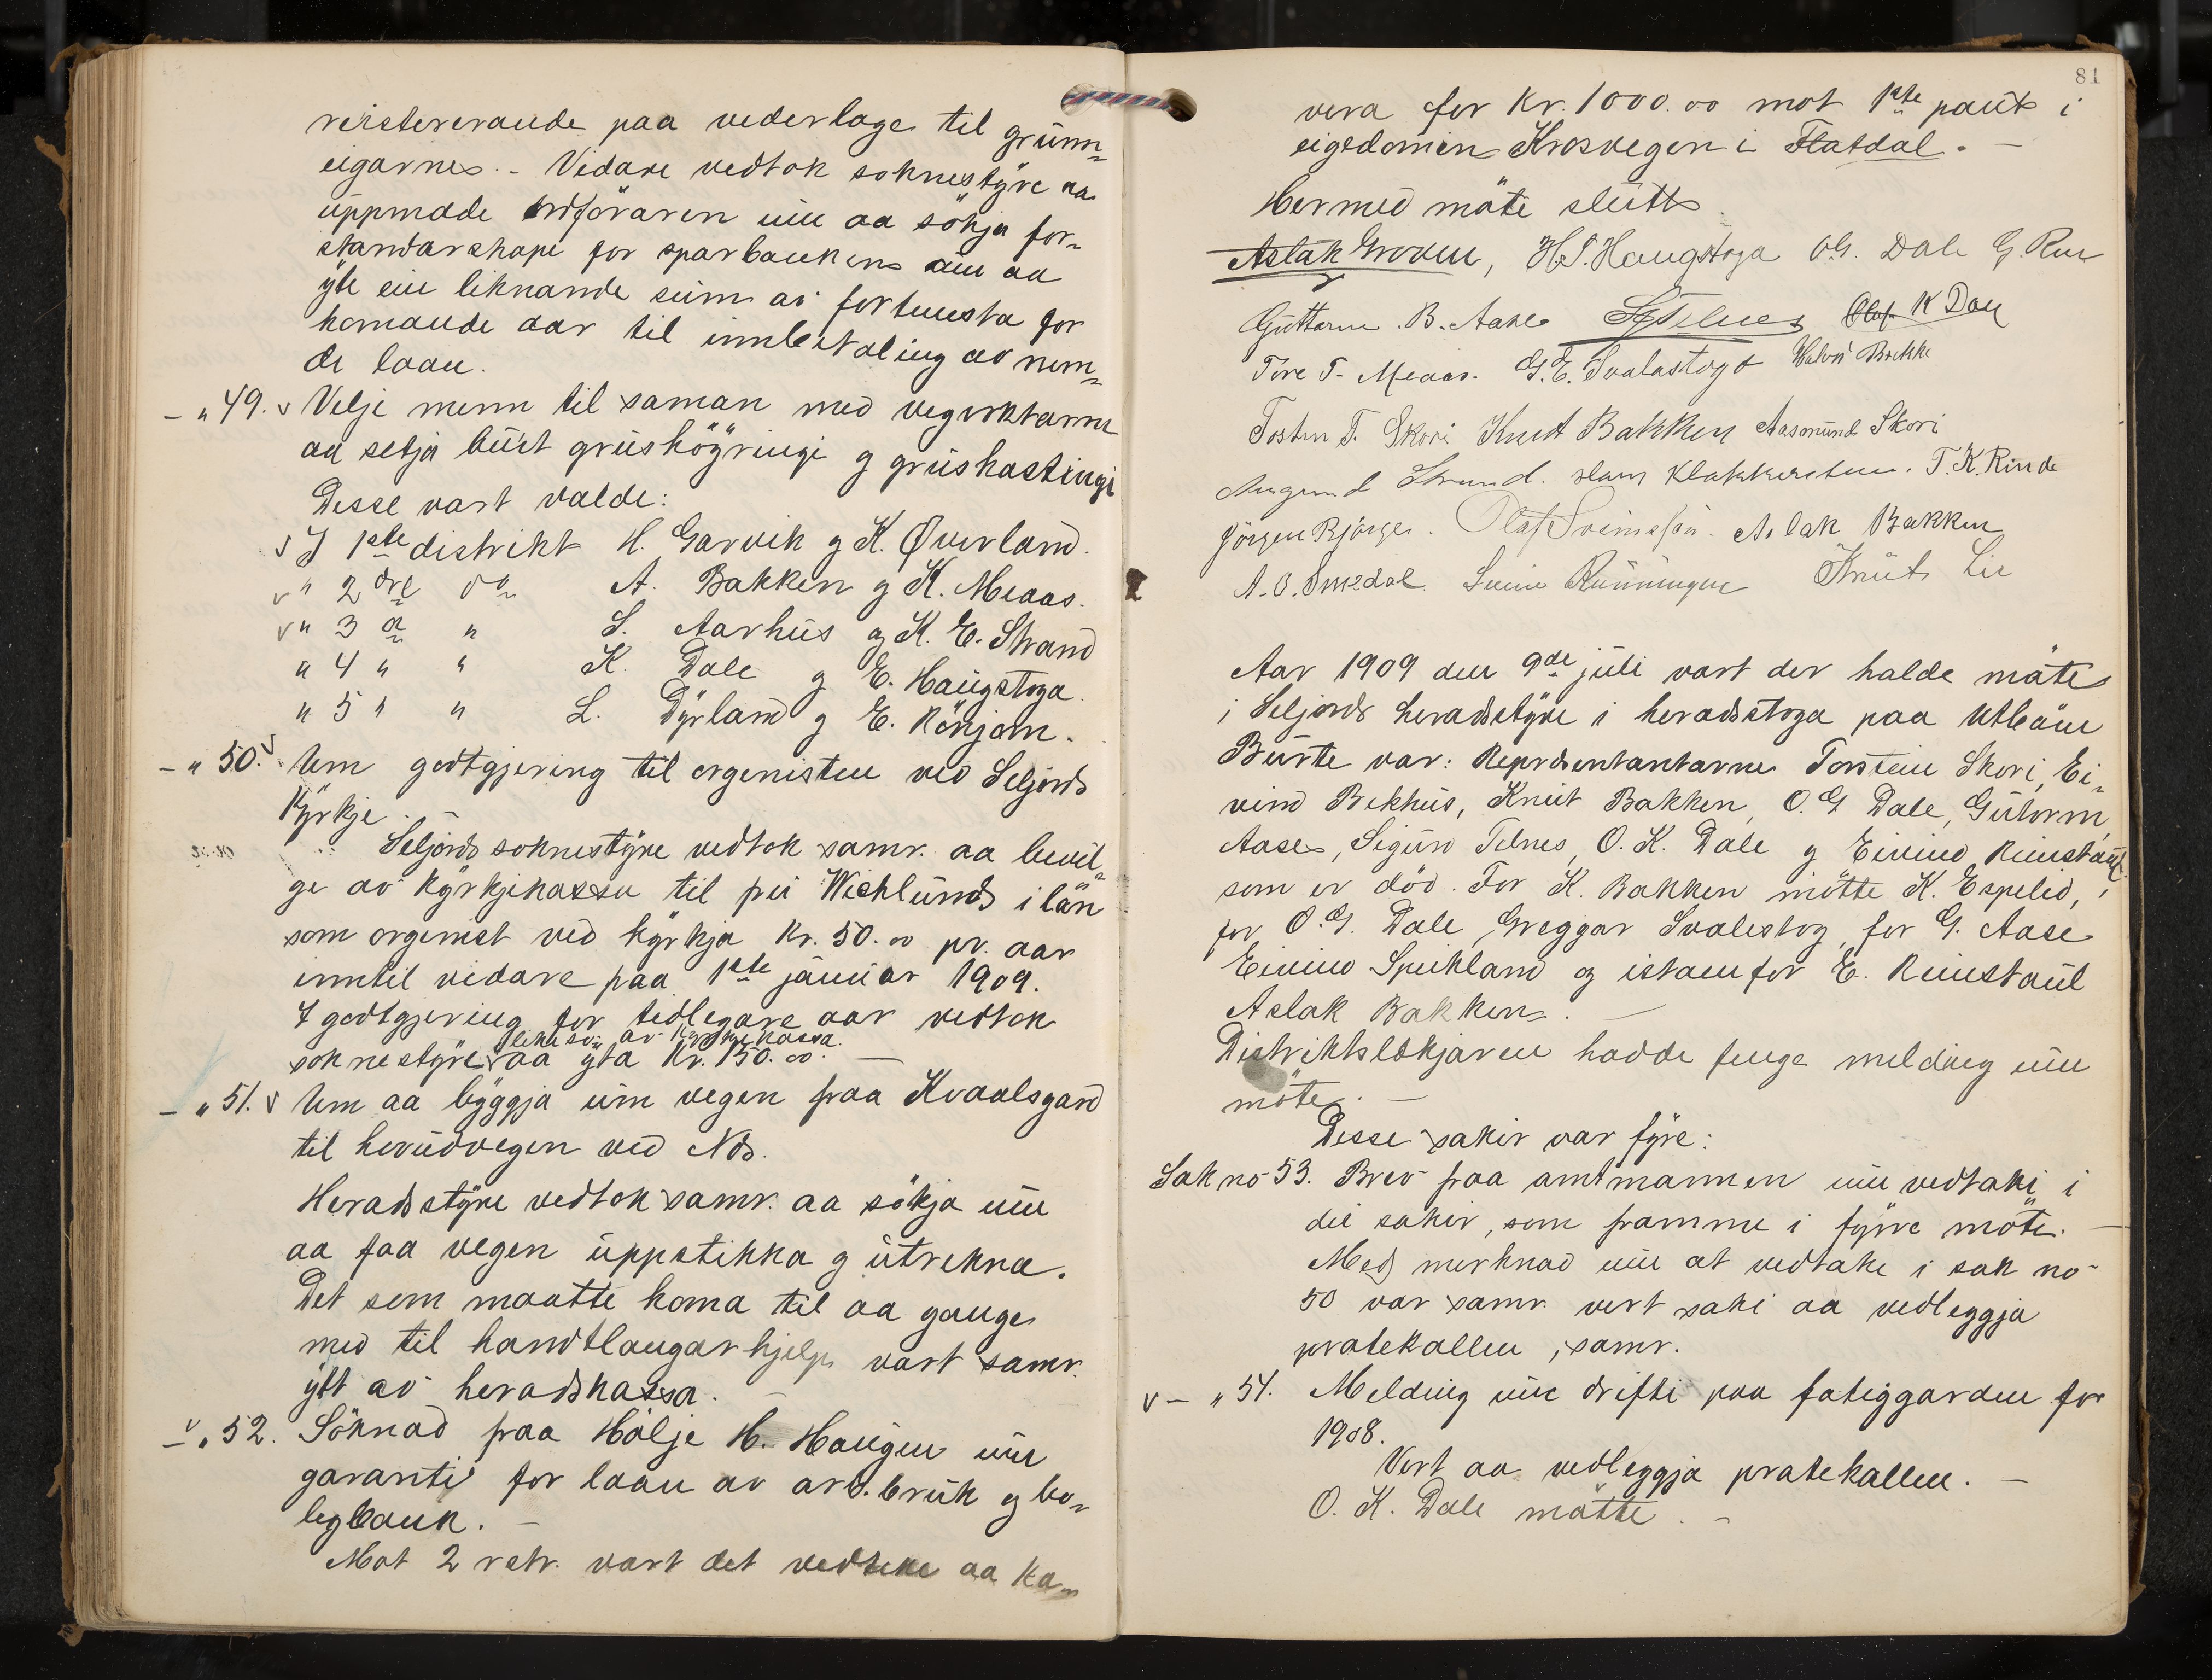 resterande paa vederlage til grunn=
eigarne. - Vidare vedtok soknestyre aa
uppmode ordføraren um aa søkja for-
standarskape for sparbanken um aa
yte ein liknande sum av fortenesta for
komande aar til innbetaling av nem=
de laan.
- " 49. v Velje menn til saman med vegvoktarne
aa setja burt grushøgringi og gruskastingi
Desse vart valde:
v I 1ste distrikt H. Garvik og K. Øverland.
v " 2dre do A. Bakken og K. Meaas.
v " 3 a " S. Aarhus og K. E. Strand
" 4 " " K. Dale og E. Haugstoga.
" 5 " " L. Dyrland og E. Rönjom.
- " 50. v Um godtgjering til orgenisten ved Seljords
kyrkje.
Seljords soknestyre vedtok samr. aa bevil-
ge av kyrkjekassa til Wichlunds i lön
som orgenist ved kyrkja Kr. 50.00 pr. aar
inntil vidare fraa 1ste januar 1909.
I godtgjering for tidlegare aar vedtok
likeso av kyrkjekassa.
soknestyre aa yta Kr. 150.00. -
- " 51. v Um aa byggja um vegen fraa Kvaalsgard
til hovudvegen ved Nds.
Heradsstyre vedtok samr. aa søkja um
aa faa vegen uppstikka og utrekna.
Det som maatte koma til aa gange
med til handtlangarhjelp vart samr.
ytt av heradskassa. -
v - " 52. Söknad fraa Hølje H. Haugen um
garanti for laan av arb.bruk og bo-
ligbank. -
Mot 2 rstr. vart det vedteke aa ka-
81
vera for Kr. 1000.00 mot 1ste pant i
eigedomen Krosvegen i Flatdal. -
Hermed møte slutt
Aslak Groven, H.S. Haugstoga O.G. Dale G. Rue
Guttorm B. Aase S. Telnes Olaf K Dale
Tore T. Meaas. G.E. Svalastoga Halvor Brekke
Tosten T. Skori Knut Bakken Aasmund Skori
Augund Strand. Klakkerstein. T. K. Rinde
Jörgen Bjørge. Olaf Sveinsson. Aslak Bakken
A. O. Smedal. Svein Runningen Knut Lie
Aar 1909 den 9de juli vart der halde møte
i Seljords heradsstyre i heradsstoga paa Utbøen
Burte var: Representantarne Torstein Skori, Ei-
vind Bekhus, Knut Bakken, O. G Dale, Gutorm
Aase, Sigurd Telnes, O. K. Dale og Eivind Kunstaul
som er död. For K. Bakken møtte K. Espelid,
for O. G. Dale, Greggar Svalestog, for G. Aase
Eivind Speikland og istaden for E. Kunstaul
Aslak Bakken. -
Distriktslækjaren hadde fenge melding um
møte. -
Desse sakir var fyre:
Sak no 53. Brev fraa amtmannen um vedtaki i
dei sakir, som framme i fyrre møte. -
Med merknad um at vedtake i sak no
50 var samr. vert saki aa vedleggja
pratekallen, samr.
v - " 54. Melding um drifti paa fatiggarden for
1908.
Vert aa vedleggja pratekallen. -
O. K. Dale møtte. -